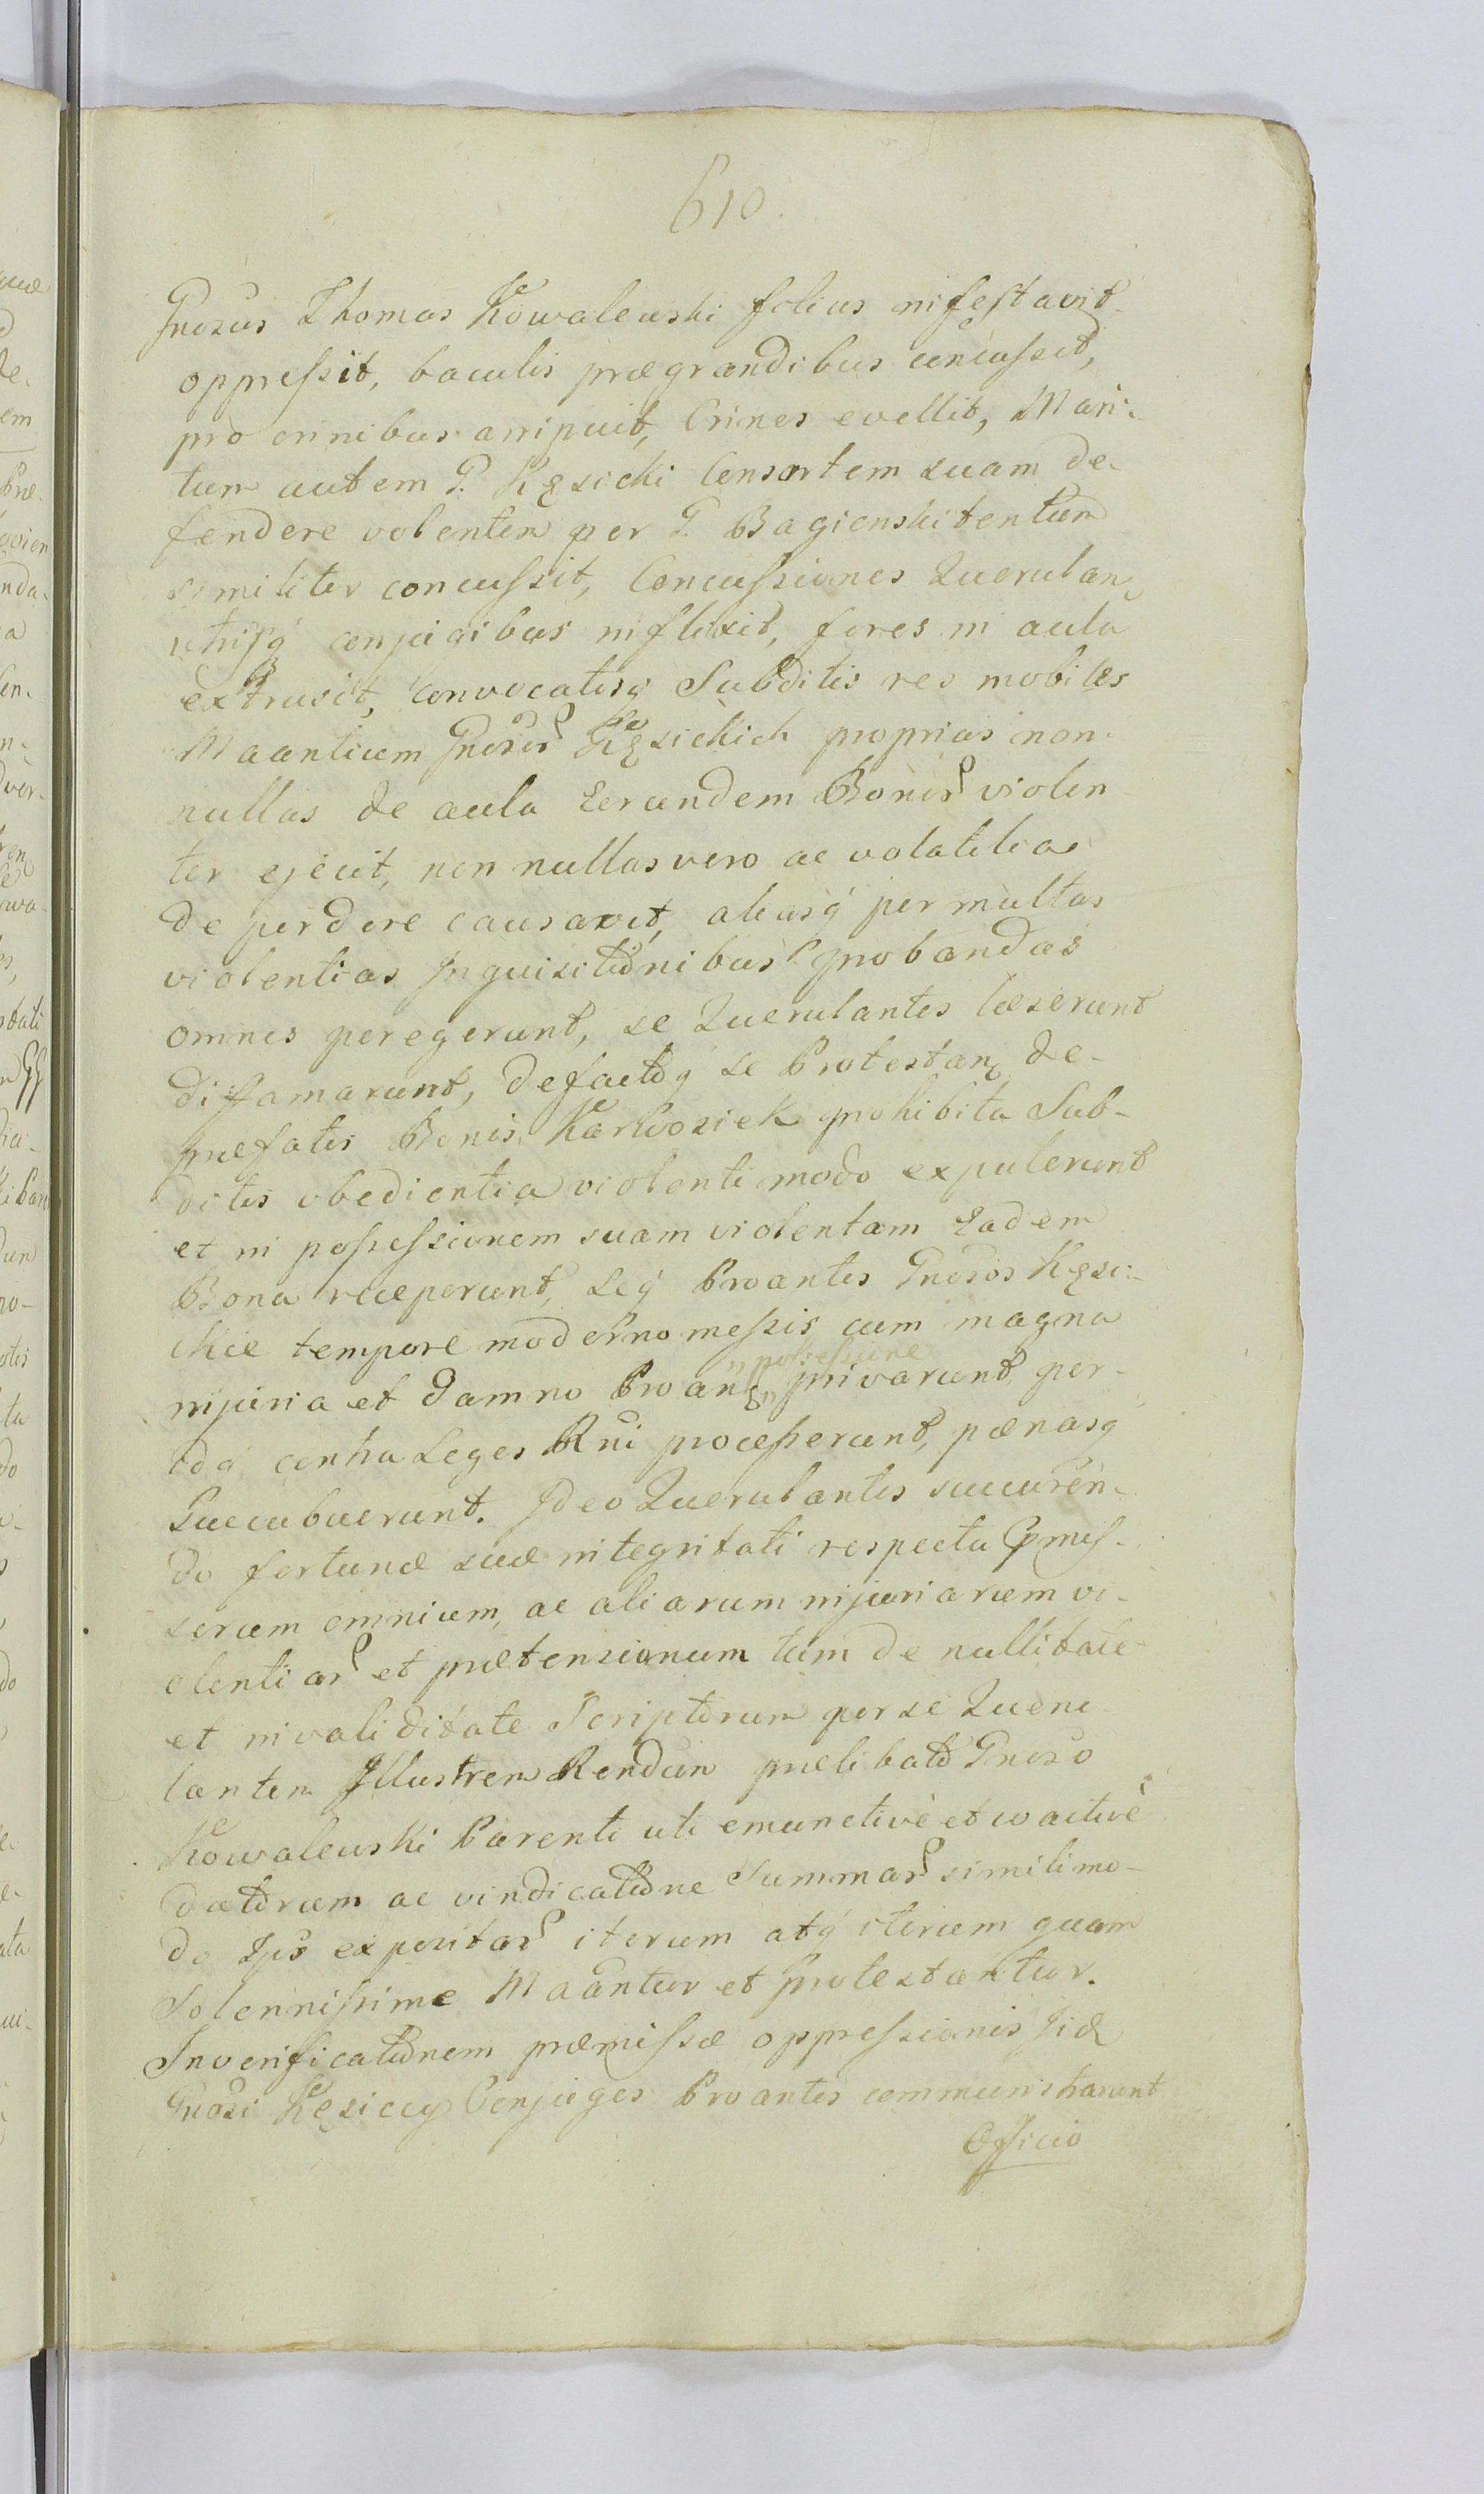 610.
Gnosus Thomas Kowalewski filius infestavit
oppressit, baculis prægrandibus concussit,
pro crinibus arripuit, Crines evellit, Mari-
tum autem G. Kęsicki Consortem suam de-
fendere volentem per G. Bagienski tentum
similiter concussit, Concussiones Querulan
utrisq conjugibus inflixit, fores in aula
extrusit, convocatisq Subditis res mobiles
Maantium Gnosor Kęsickich proprias non-
nullas de aula Eorundem Bonor violen
ter ejecit, non nullas vero ac volatilia
de perdere causavit, aliasq per multas
violentias Inquisitionibus probandas
omnes peregerunt, se Querulantes læserunt
diffamarunt, defactoq se Protestan de
præfatis Bonis Karwosiek prohibita Sub-
ditis obedientia violenti modo expulerunt
et in possessionem suam violentam Eadem
Bona receperunt, Seq Proantes Gnosos Kęsic-
kie tempore moderno messis cum magna
injuria et damno Proan possessione privarunt, per-
idq contra Leges Rni processerunt, pænasq
Succubuerunt. Ideo Querulantes succuren-
do fortunæ suæ integritati respectu Præmis-
sorum omnium, ac aliarum injuriarum vi-
olentiar et prætensionum tum de nullitate
et invaliditate Scriptorum per se Queru
lantem Illustrem Rendum prælibato Gnoso
Kowalewski Parenti uti emunctivè et coactivè
datorum ac vindicatione Summar simili mo-
do Ips expositar iterum atq iterum quam
Solennissime Maantur et Protestantur.
In verificationem præmissæ oppressionis Iidem
Gnosi Kęsiccy Conjuges Proantes commonstrarunt
Officio